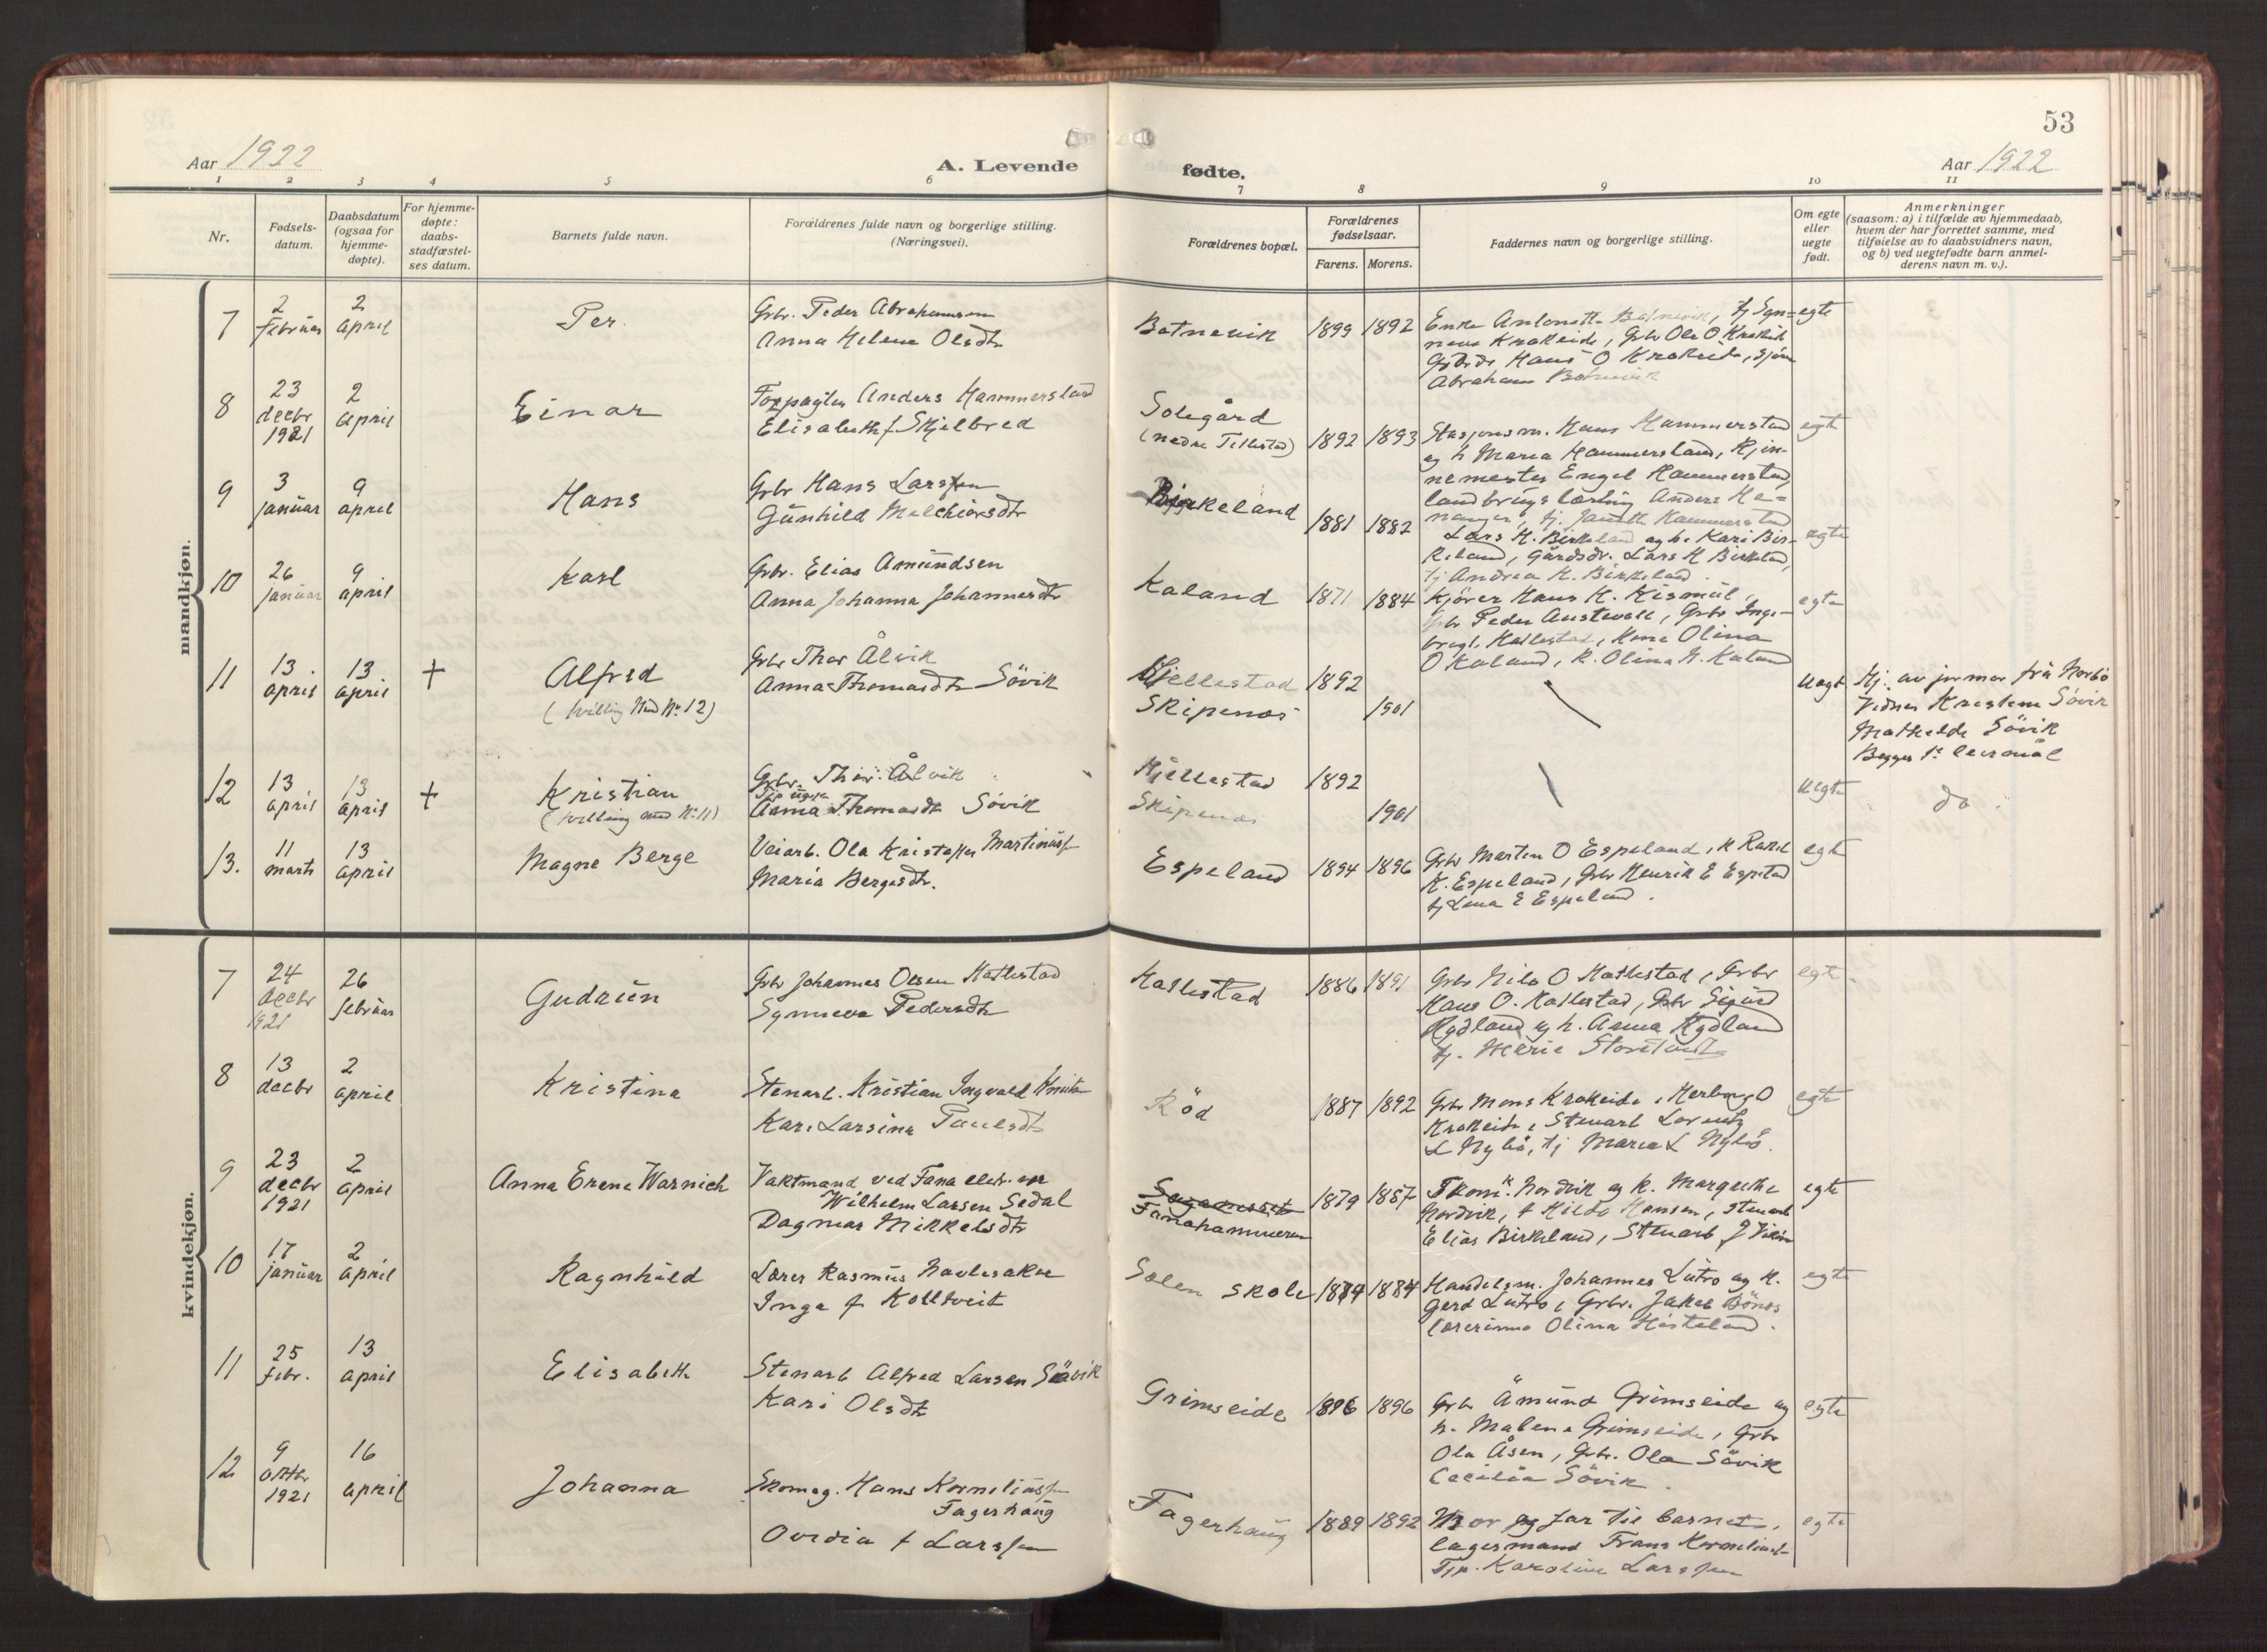 53
Aar 1922
A. Levende
fødte.
Aar 1922
1 2 3 4 5 6 7 8 9 10 11
Nr.
Fødsels-
datum.
Daabsdatum
(ogsaa for
hjemme-
døpte).
For hjemme-
døpte:
daabs-
stadfæstel-
ses datum.
Barnets fulde navn.
Forældrenes fulde navn og borgerlige stilling.
(Næringsvei).
Forældrenes bopæl.
Forældrenes
fødselsaar.
Farens. Morens.
Faddernes navn og borgerlige stilling.
Om egte
eller
uegte
født.
Anmerkninger
(saasom: a) i tilfælde av hjemmedaab,
hvem der har forrettet samme, med
tilføielse av to daabsvidners navn,
og b) ved uegtefødte barn anmel-
derens navn m. v.).
mandkjøn.
7
2
februar
2
april
Per
Grbr. Peder Abrahamsen
Anna Helene Olsdtr
Botnevik
1899 1892
Enke Antonette Botnevik, tj Syn-
neve Krokeide, Grbr Ole O. Krokeide
Hans O Krokeide,
Abraham Botnevik
egte
8
23
decbr
1921
2
april
Einar
Anders Hammersland
Elisabeth f. Skjelbred
Solegård
(nedre Titlestad)
1892 1893
Stasjonsm. Hans Hammersland
og h Maria Hammersland,
Engel Hammersland,
landbrugslærling Anders He-
egte
9
3
januar
9
april
Hans
Grbr Hans Larssen
Gunhild Melchiorsdtr
Birkeland
1881 1882
Lars H. Birkeland og h. Kari Bir-
keland, Gårdsdr. Lars H Birkeland,
tj Andrea H. Birkeland.
egte
10
26
januar
9
april
Karl
Grbr. Elias Amundsen
Anna Johanna Johannesdtr
Kaland
1871 1884
Kjører Hans H. Kismul,
Grbr Peder Austevoll, Grbr Inge-
brigt Hatlestad, Kone Olina
O Kaland, K. Olina N. Kaland
egte
11
13
april
13
april
+
Alfred
(tvilling med Nr 12)
Grbr Thor Ålvik
Anna Thomasdtr Søvik
Hjellestad
Skipenes
1892
1901
uegte
Hj. av jormor frå Norbø
Vidner Kristine Søvik
Mathilde Søvik
12
13
april
13
april
+
Kristian
(tvilling med Nr 11)
Grbr. Thor Ålvik
Anna Thomasdtr Søvik
Hjellestad
Skipenes
1892
1901
uegte
do
13.
11
marts
13
april
Magne Berge
Veiarb. Ola Kristoffer Martinuss.
Maria Bergesdtr.
Espeland
1894 1896
Grbr Marten O Espeland, k Rakel
K. Espeland, Grbr Henrik E Espeland
tj Lena E Espeland.
egte
kvindekjøn.
7
24
decbr
1921
26
februar
Gudrun
Grbr Johannes Olsen Hatlestad
Synneva Pedersdtr
Hatlestad
1886 1891
Grbr Nils O Hatlestad, Grbr
Hans O. Hatlestad, Grbr Sigurd
Rydland og h. Anna Rydland
tj. Marie
egte
8
13
decbr
2
april
Kristina
Stenarb. Kristian Ingvald Knutsen
Kari Larsina Paulsdtr
Rød
1887 1892
Grbr Mons Krokeide, Herborg O
Krokeide, Stenarb Lorentz
L Nybø, tj Maria L Nybø.
egte
9
23
decbr
1921
2
april
Anna Erene Warnich
Vaktmand ved Fana
Wilhelm Larsen Sedal
Dagmar Mikkelsdtr
Fanahammeren
1879 1887
Nordvik og k. Margrethe
Nordvik, f Hilda Hansen, stenarb
Elias Birkeland, Stenarb
egte
10
17
januar
2
april
Ragnhild
Lærer Rasmus
Inga f Kolltveit
Solen skole
1884 1884
Handelsm. Johannes Lutro og k.
Gerd Lutro, Grbr. Jakob Bønes
Lærerinne Olina
egte
11
25
febr.
13
april
Elisabeth
Stenarb Alfred Larsen Søvik
Kari Olsdtr
Grimseide
1896 1896
Grbr Åmund Grimseide og
h. Malene Grimseide, Grbr
Ola Åsen, Grbr. Ola Søvik
Cecilia Søvik.
egte
12
9
oktbr
1921
16
april
Johanna
Skomag. Hans Korneliuss.
Fagerhaug
Ovidia f Larssen
Fagerhaug
1889 1892
Mor og far til barnet,
lagermand Frans Korneliuss.
Karoline Larssen
egte